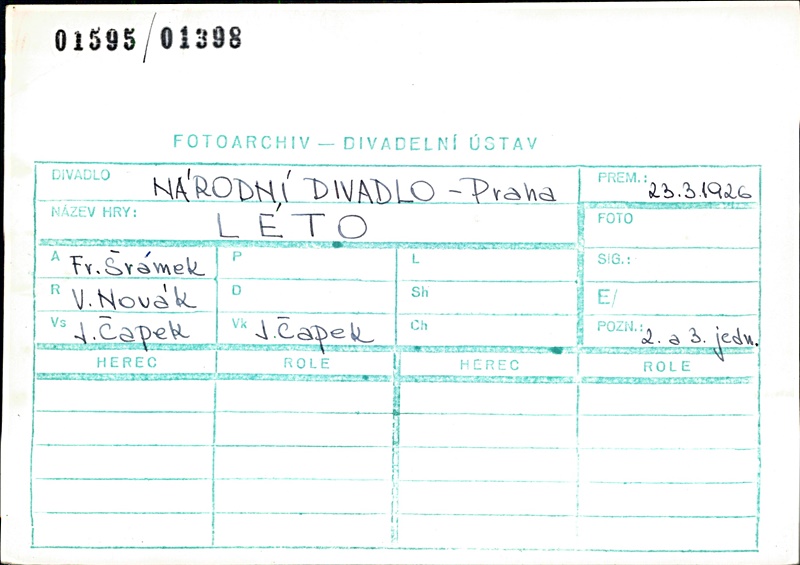 01595/01398
FOTOARCHIV — DIVADELNÍ ÚSTAV
DIVADLO NÁRODNÍ DIVADLO - Praha PREM.: 23.3.1926
NÁZEV HRY: LÉTO FOTO
A Fr. Šrámek P L SIG.:
R V. Novák D Sh E/
Vs J. Čapek Vk J. Čapek Ch POZN.: 2. a 3. jedn.
HEREC ROLE HEREC ROLE